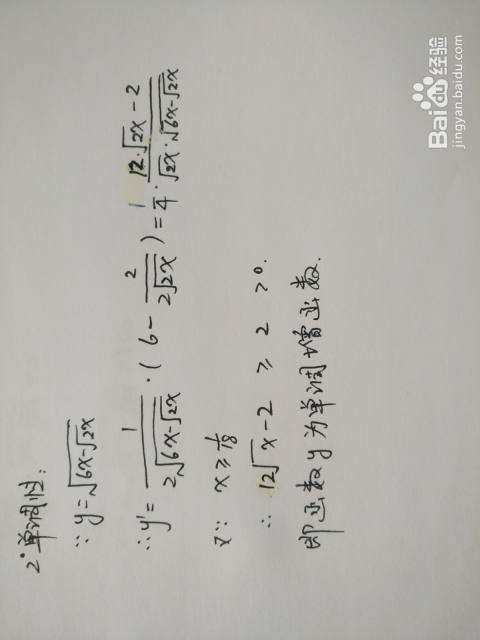 2° 单调性:
∵ y=√(6x-√(2x))
∴ y'= 1/(2√(6x-√(2x))) · (6 - 2/(2√(2x))) = 1/4 · (12·√(2x) - 2)/(√(2x)·√(6x-√(2x)))
又∵ x ≥ 1/18
∴ 12√x - 2 ≥ 2 > 0.
即函数 y 为单调增函数.
Baidu经验
jingyan.baidu.com